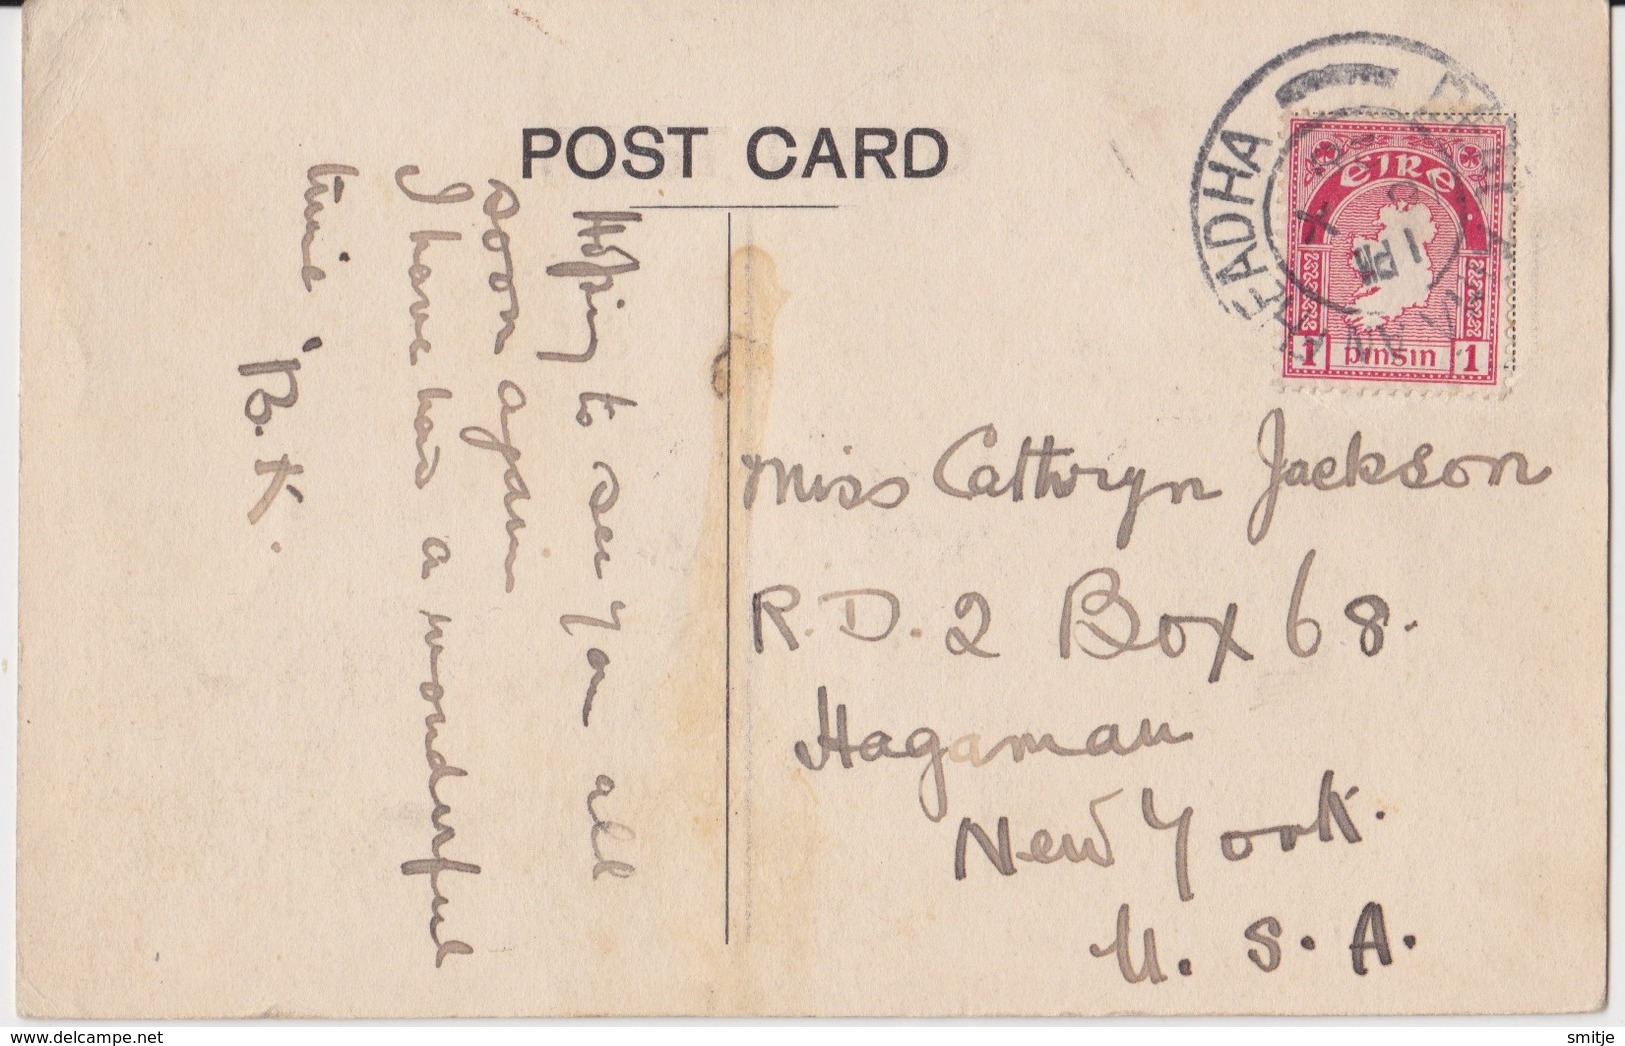 POST CARD
Hoping to see you all
soon again
I have had a wonderful
time
B. K.
ÉIRE
1 pinsin 1
1 PM
Miss Cathryn Jackson
R.D. 2 Box 68.
Hagaman
New York.
U. S. A.
delcampe.net
smitje